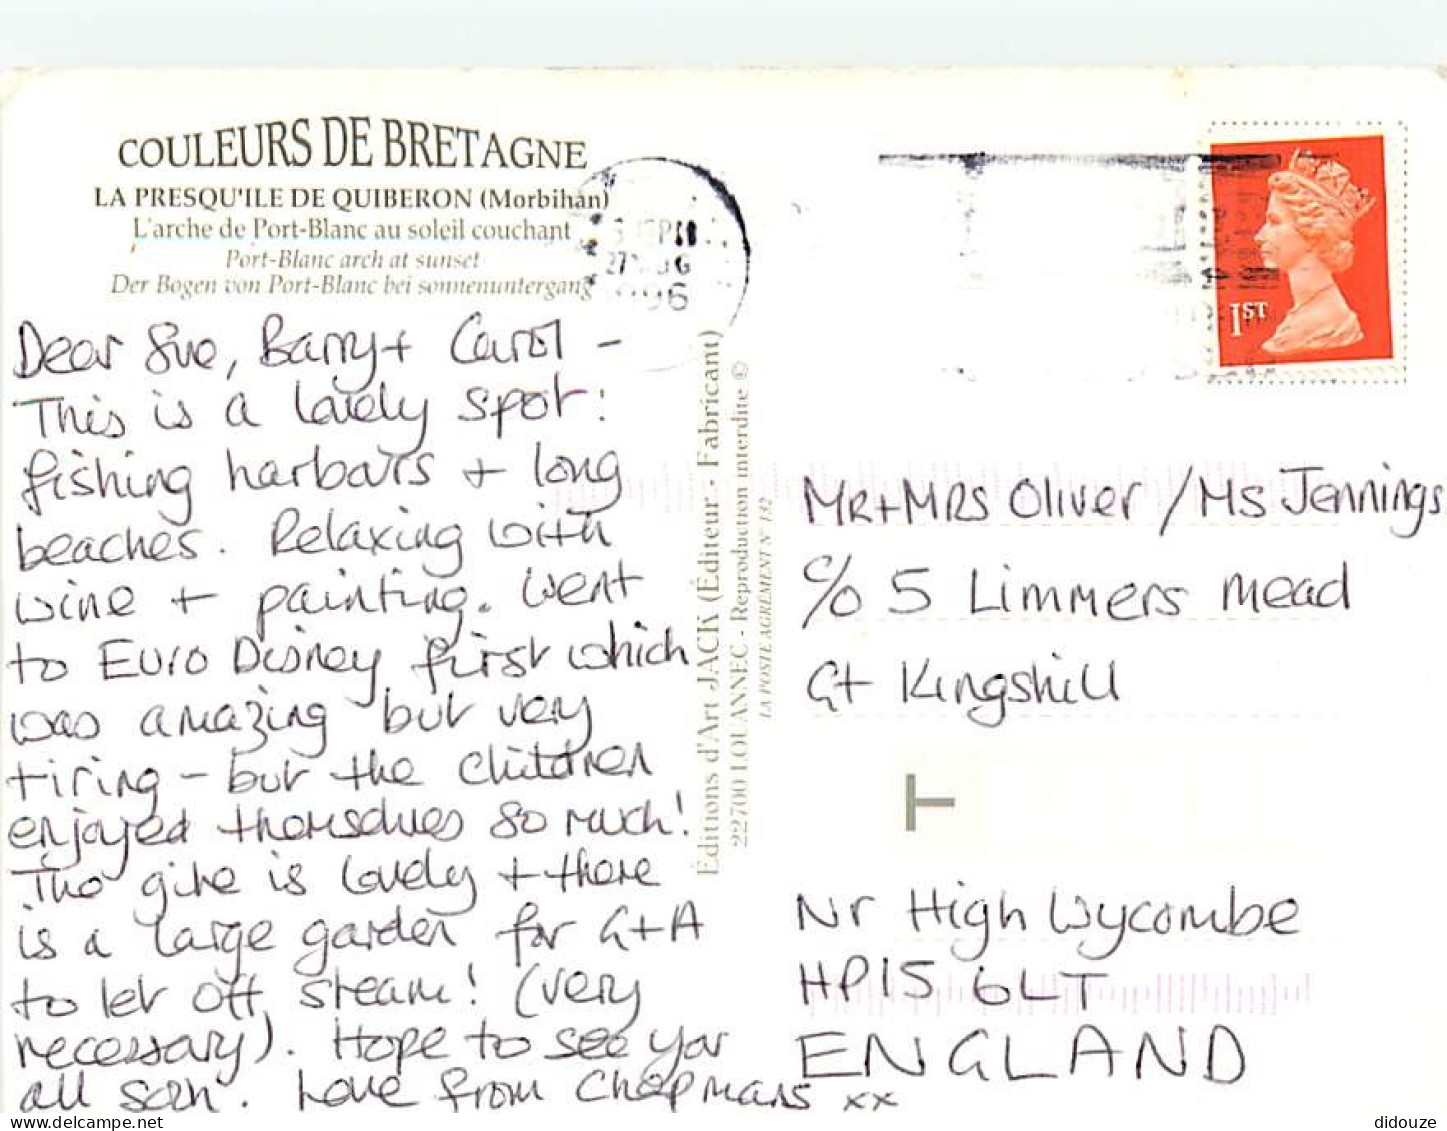 COULEURS DE BRETAGNE
LA PRESQU'ILE DE QUIBERON (Morbihan)
L'arche de Port-Blanc au soleil couchant
Port-Blanc arch at sunset
Der Bogen von Port-Blanc bei sonnenuntergang
Dear Sue, Barry + Carol -
This is a lovely spot:
fishing harbours + long
beaches. Relaxing with
wine + painting. Went
to Euro Disney first which
was amazing but very
tiring - but the children
enjoyed themselves so much!
The gite is lovely + there
is a large garden for G+A
to let off steam! (very
necessary). Hope to see you
all soon. Love from Chapmans xx
Éditions d'Art JACK (Éditeur - Fabricant)
22700 LOUANNEC - Reproduction interdite ©
LA POSTE AGRÉMENT N° 132
96
1ST
MR+MRS Oliver / Ms Jennings
c/o 5 Limmers Mead
Gt Kingshill
T
Nr High Wycombe
HP15 6LT
ENGLAND
didouze